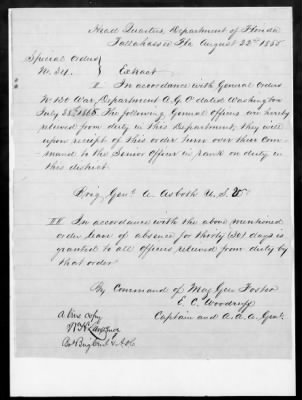 Head Quarters, Department of Florida
Tallahassee Fla August 22nd 1865
Special Orders
No. 34. Extract
I. In accordance with General Orders
No 130 War Department A.G.O. dated Washington
July 28th 1865. The following General officers are hereby
relieved from duty in this Department, they will
upon receipt of this order turn over their Com-
mand to the Senior Officer in rank on duty in
this district.
Brig. Genl. A. Asboth U.S.V.
III In accordance with the above mentioned
order leave of absence for thirty (30) days is
granted to all officers relieved from duty by
that order
By Command of Maj Gen Foster
E. C. Woodruff
Captain and A.A.A. Genl.
A true copy